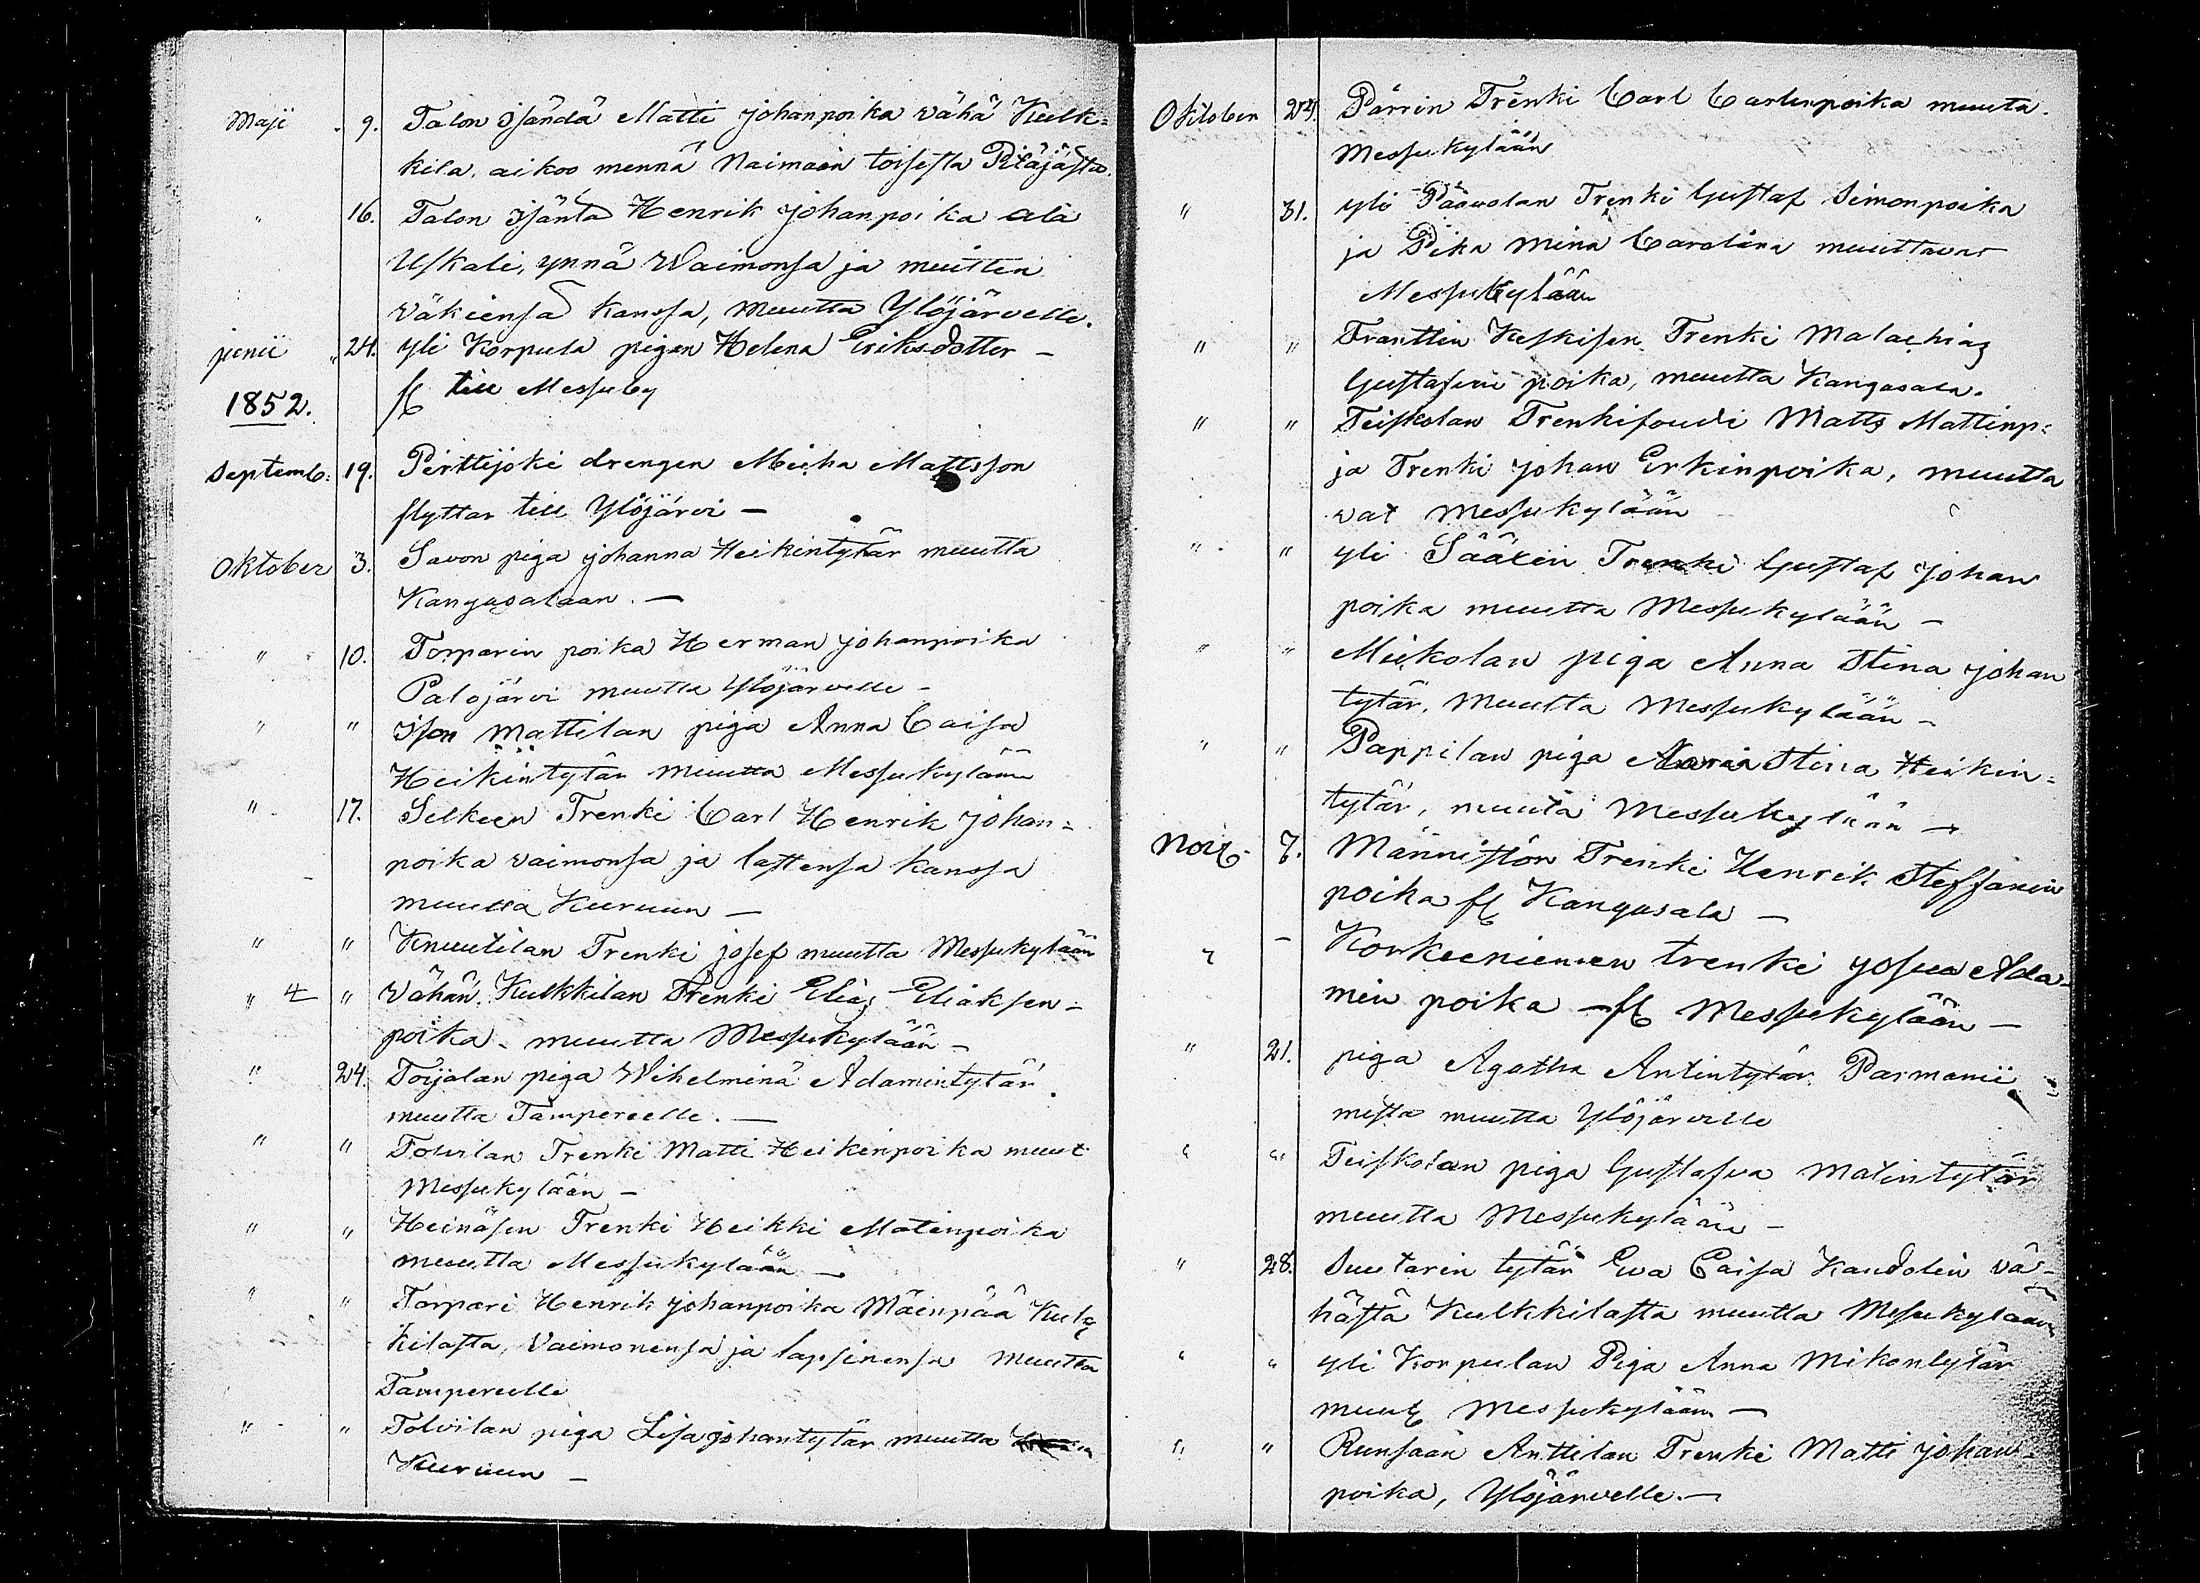 Maji 9. Talon isändä Matti johanpoika vähä Kulk=
kila, aikoo mennä Naimaan toisesta Pitäjästa.
" 16. Talon isänta Henrik johanpoika ala
Uskali, ynnä Waimonsa ja muitten
väkiensä kanssa, muutta Ylöjärvelle.
junii " 24. yli Korpula pigan Helena Eriksdotter –
1852. fl till Messuby
Septemb: 19. Perttijoki drengen Micha Mattsson
flyttar till Ylöjärvi –
Oktober 3. Savon piga johanna Heikintytär muutta
Kangasalaan. –
" 10. Torparin poika Herman johanpoika
Palojärvi muutta Ylöjärvelle –
" " Ison Mattilan piga Anna Caisa
Heikintytär muutta Messukylään
" 17. Selkeen Trenki Carl Henrik johan=
poika vaimonsa ja lastensa kanssa
muutta Kuruun –
" " Knuutilan Trenki josef muutta Messukylään
" 4 " Vähän Kulkkilan Trenki Elias Eliaksen=
poika – muutta Messukylään –
" 24. Toijalan piga Wihelminä Adamintytär
muutta Tampereelle. –
" " Tolvilan Trenki Matti Heikinpoika muut
Messukylään –
" " Heinäsen Trenki Heikki Matinpoika
muutta Messukylään –
" " Torpari Henrik johanpoika Mäenpää Kulk
kilasta, Vaimonensa ja lapsinensa muutta
Tampereelle
" " Tolvilan piga Lisa johantytär muutta
Kuruun –
Oktober 24. Pärrin Trenki Carl Carlinpoika muuta.
Messukylään
" 31. yli Pääwolan Trenki Gustaf Simonpoika
ja Pika Mina Carolina muuttavat
Messukylään
" " Tranttin Keskisen Trenki Malachias
Gustafvin poika, muutta Kangasala.
" " Teiskolan Trenkifoudi Matts Mattinp:
ja Trenki johan Erkinpoika, muutta
vat Messukylään
" " yli Säälin Trenki Gustaf johan
poika muutta Messukylään –
" " Mickolan piga Anna Stina johan
tytär, muutta Messukylään –
" " Pappilan piga Maria Stina Heikin=
tytär, muuta Messukylään –
Nov 7. Männistön Trenki Henrik Steffanin
poika fl Kangasala –
" – Korkeeniemen trenki josua Ada=
min poika – fl Messukylään –
" 21. piga Agatha Antintytär Parmanii=
mestä muutta Ylöjärvelle
" " Teiskolan piga Gustafva Matintytär
muutta Messukylään –
" 28. Suutarin tytär Ewa Caisa Kandolin vä=
hästä Kulkkilasta muutta Messukylään
" " yli Korpulan Piga Anna Mikontytär
muut Messukylään –
" " Runsaan Anttilan Trenki Matti johan=
poika, Ylöjärvelle. –